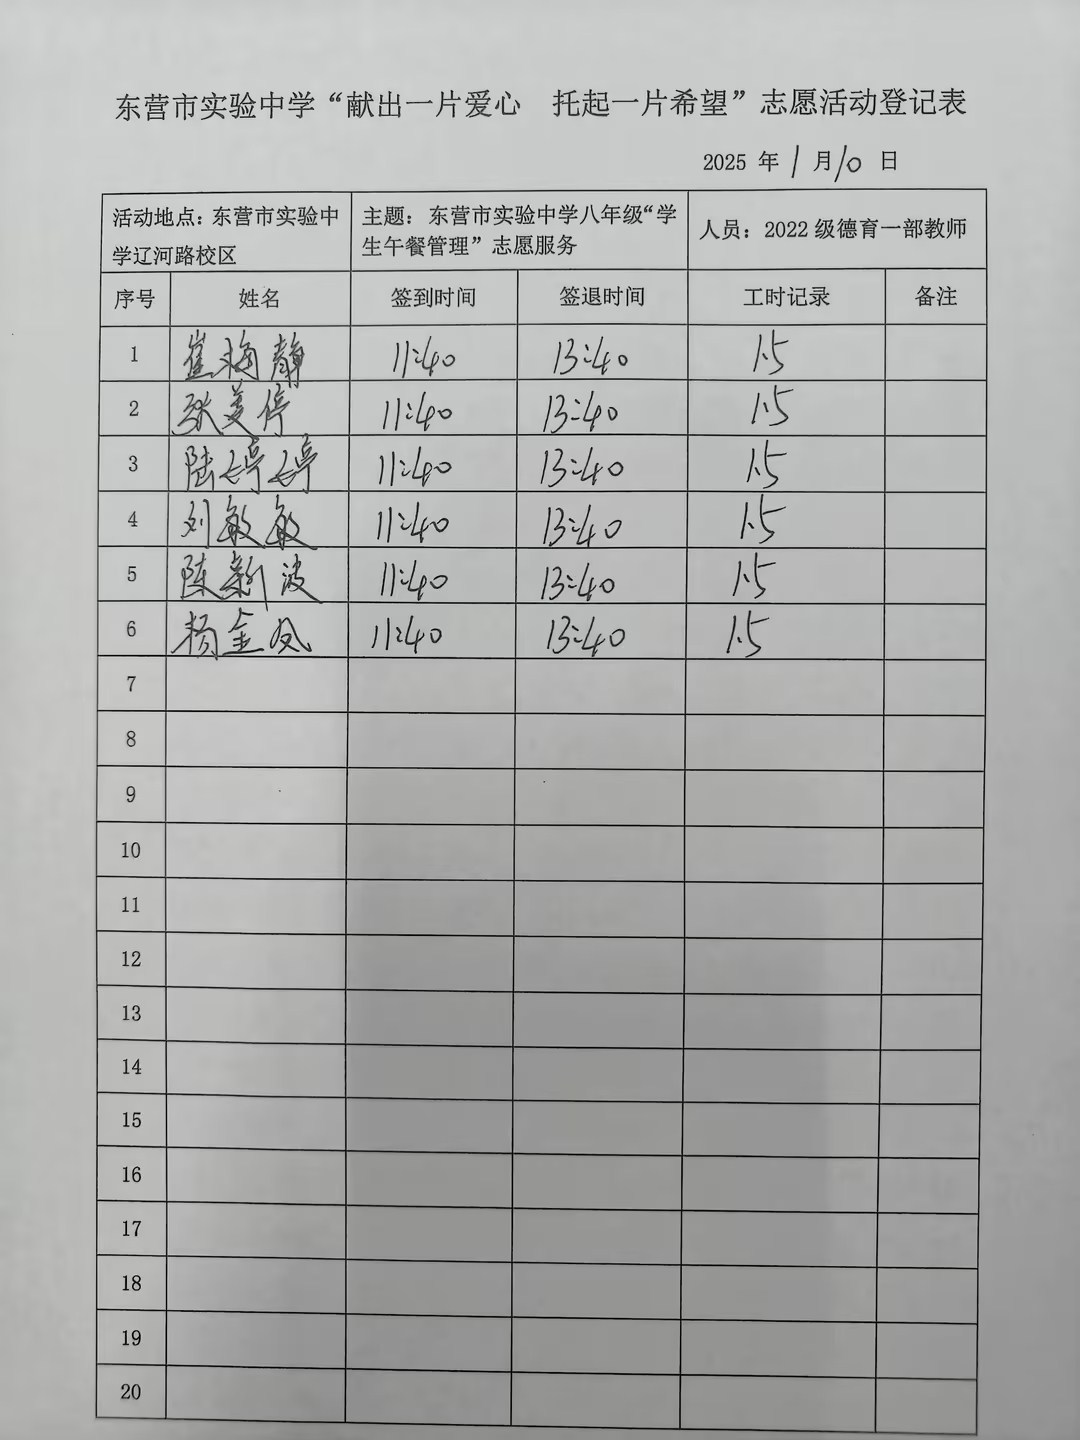 东营市实验中学“献出一片爱心 托起一片希望”志愿活动登记表
2025 年 1 月 10 日
活动地点：东营市实验中学辽河路校区 主题：东营市实验中学八年级“学生午餐管理”志愿服务 人员：2022 级德育一部教师
序号 姓名 签到时间 签退时间 工时记录 备注
1 崔梅静 11:40 13:40 1.5
2 张美停 11:40 13:40 1.5
3 陆婷婷 11:40 13:40 1.5
4 刘敏敏 11:40 13:40 1.5
5 陈新波 11:40 13:40 1.5
6 杨金凤 11:40 13:40 1.5
7
8
9
10
11
12
13
14
15
16
17
18
19
20